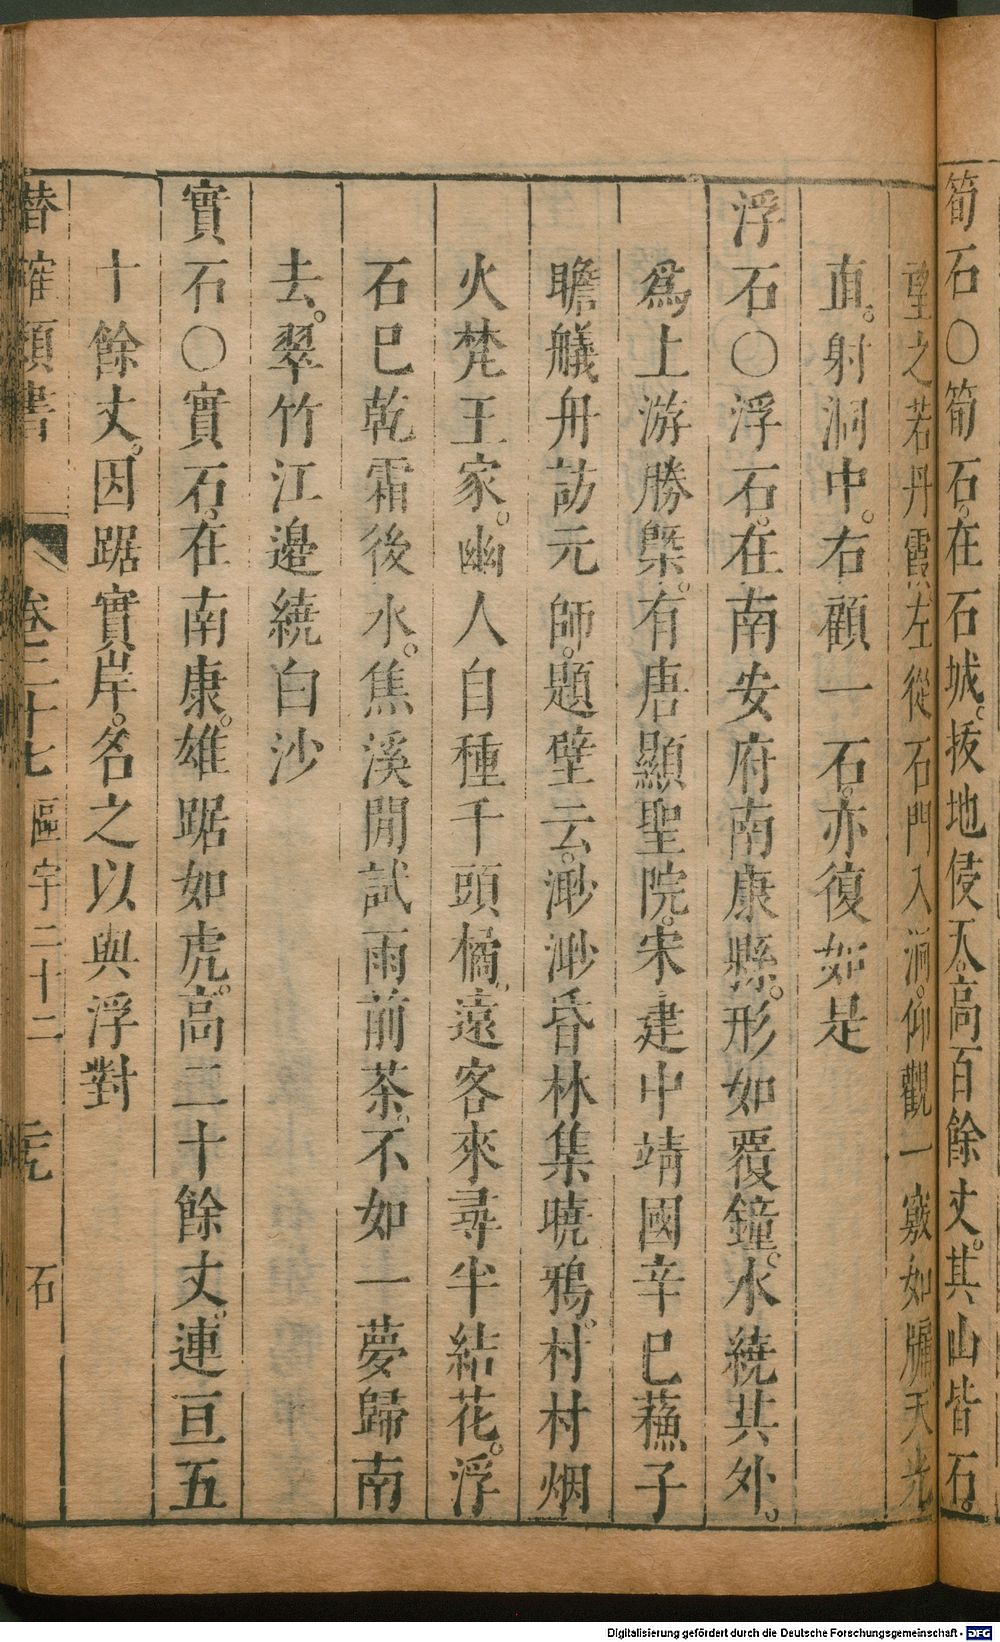 筍石〇筍石。在石城。拔地侵天。高百餘丈。其山皆石。
望之若丹霞。左從石門入洞。仰觀一竅如牖。天光
直射洞中。右顧一石。亦復如是
浮石〇浮石。在南安府南康縣。形如覆鐘。水繞其外。
爲上游勝槩。有唐顯聖院。宋建中靖國辛巳蘓子
瞻艤舟訪元師。題壁云。渺渺昏林集曉鴉。村村烟
火梵王家。幽人自種千頭橘。遠客來尋半結花。浮
石巳乾霜後水。焦溪閒試雨前茶。不如一夢歸南
去。翠竹江邉繞白沙
實石〇實石。在南康。雄踞如虎。高二十餘丈。連亘五
十餘丈。因踞實岸。名之以與浮對
潛確類書 卷二十七 區宇二十二 石
Digitalisierung gefördert durch die Deutsche Forschungsgemeinschaft - DFG